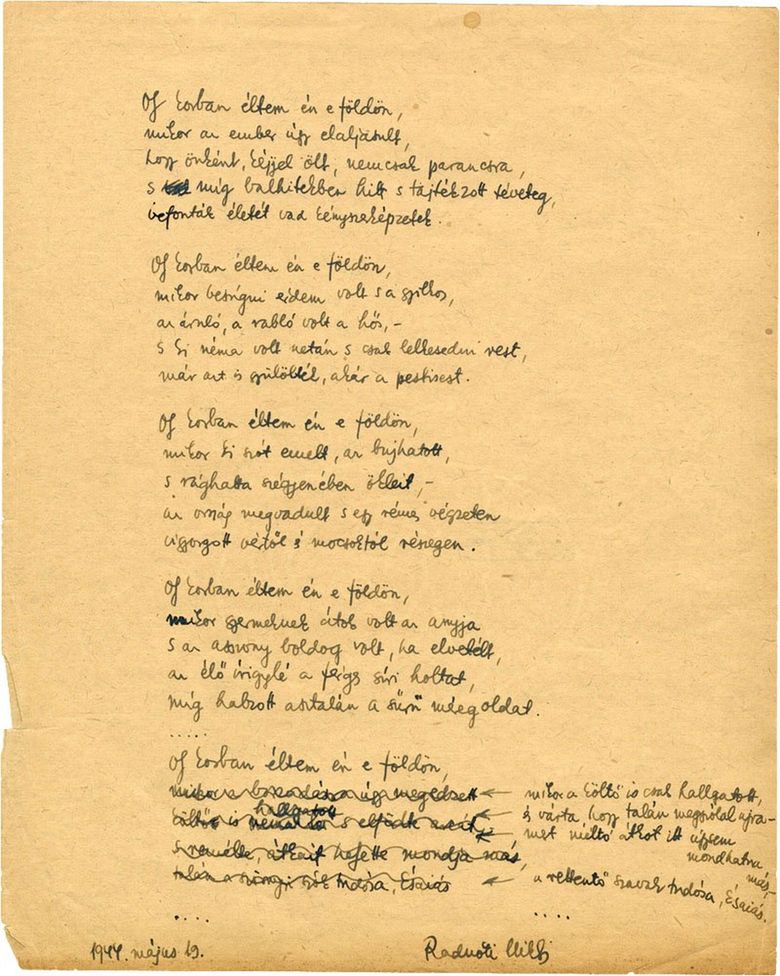 Oly korban éltem én e földön,
mikor az ember úgy elaljasult,
hogy önként, kéjjel ölt, nemcsak parancsra,
s míg balhitekben hitt s tajtékzott téveteg,
befonták életét vad kényszerképzetek.
Oly korban éltem én e földön,
mikor besúgni érdem volt s a gyilkos,
az áruló, a rabló volt a hős, –
s ki néma volt netán s csak lelkesedni rest,
már azt is gyűlölték, akár a pestisest.
Oly korban éltem én e földön,
mikor ki szót emelt, az bujhatott,
s rághatta szégyenében ökleit, –
az ország megvadult s egy rémes végzeten
vigyorgott vértől és mocsoktól részegen.
Oly korban éltem én e földön,
mikor gyermeknek átok volt az anyja
s az asszony boldog volt, ha elvetélt,
az élő írigylé a férges síri holtat,
míg habzott asztalán a sűrű méregoldat.
.....
Oly korban éltem én e földön,
mikor a úgy megedzett
hallgatott
is s elfödte arcát
s remélte, átkait helyette mondja más,
talán a szók tudósa, Ésaiás
mikor a költő is csak hallgatott,
és várta, hogy talán megszólal ujra –
mert méltó átkot itt úgysem
mondhatna
más, –
a rettentő szavak tudósa, Ésaiás.
....
....
1944. május 19.
Radnóti Mikl